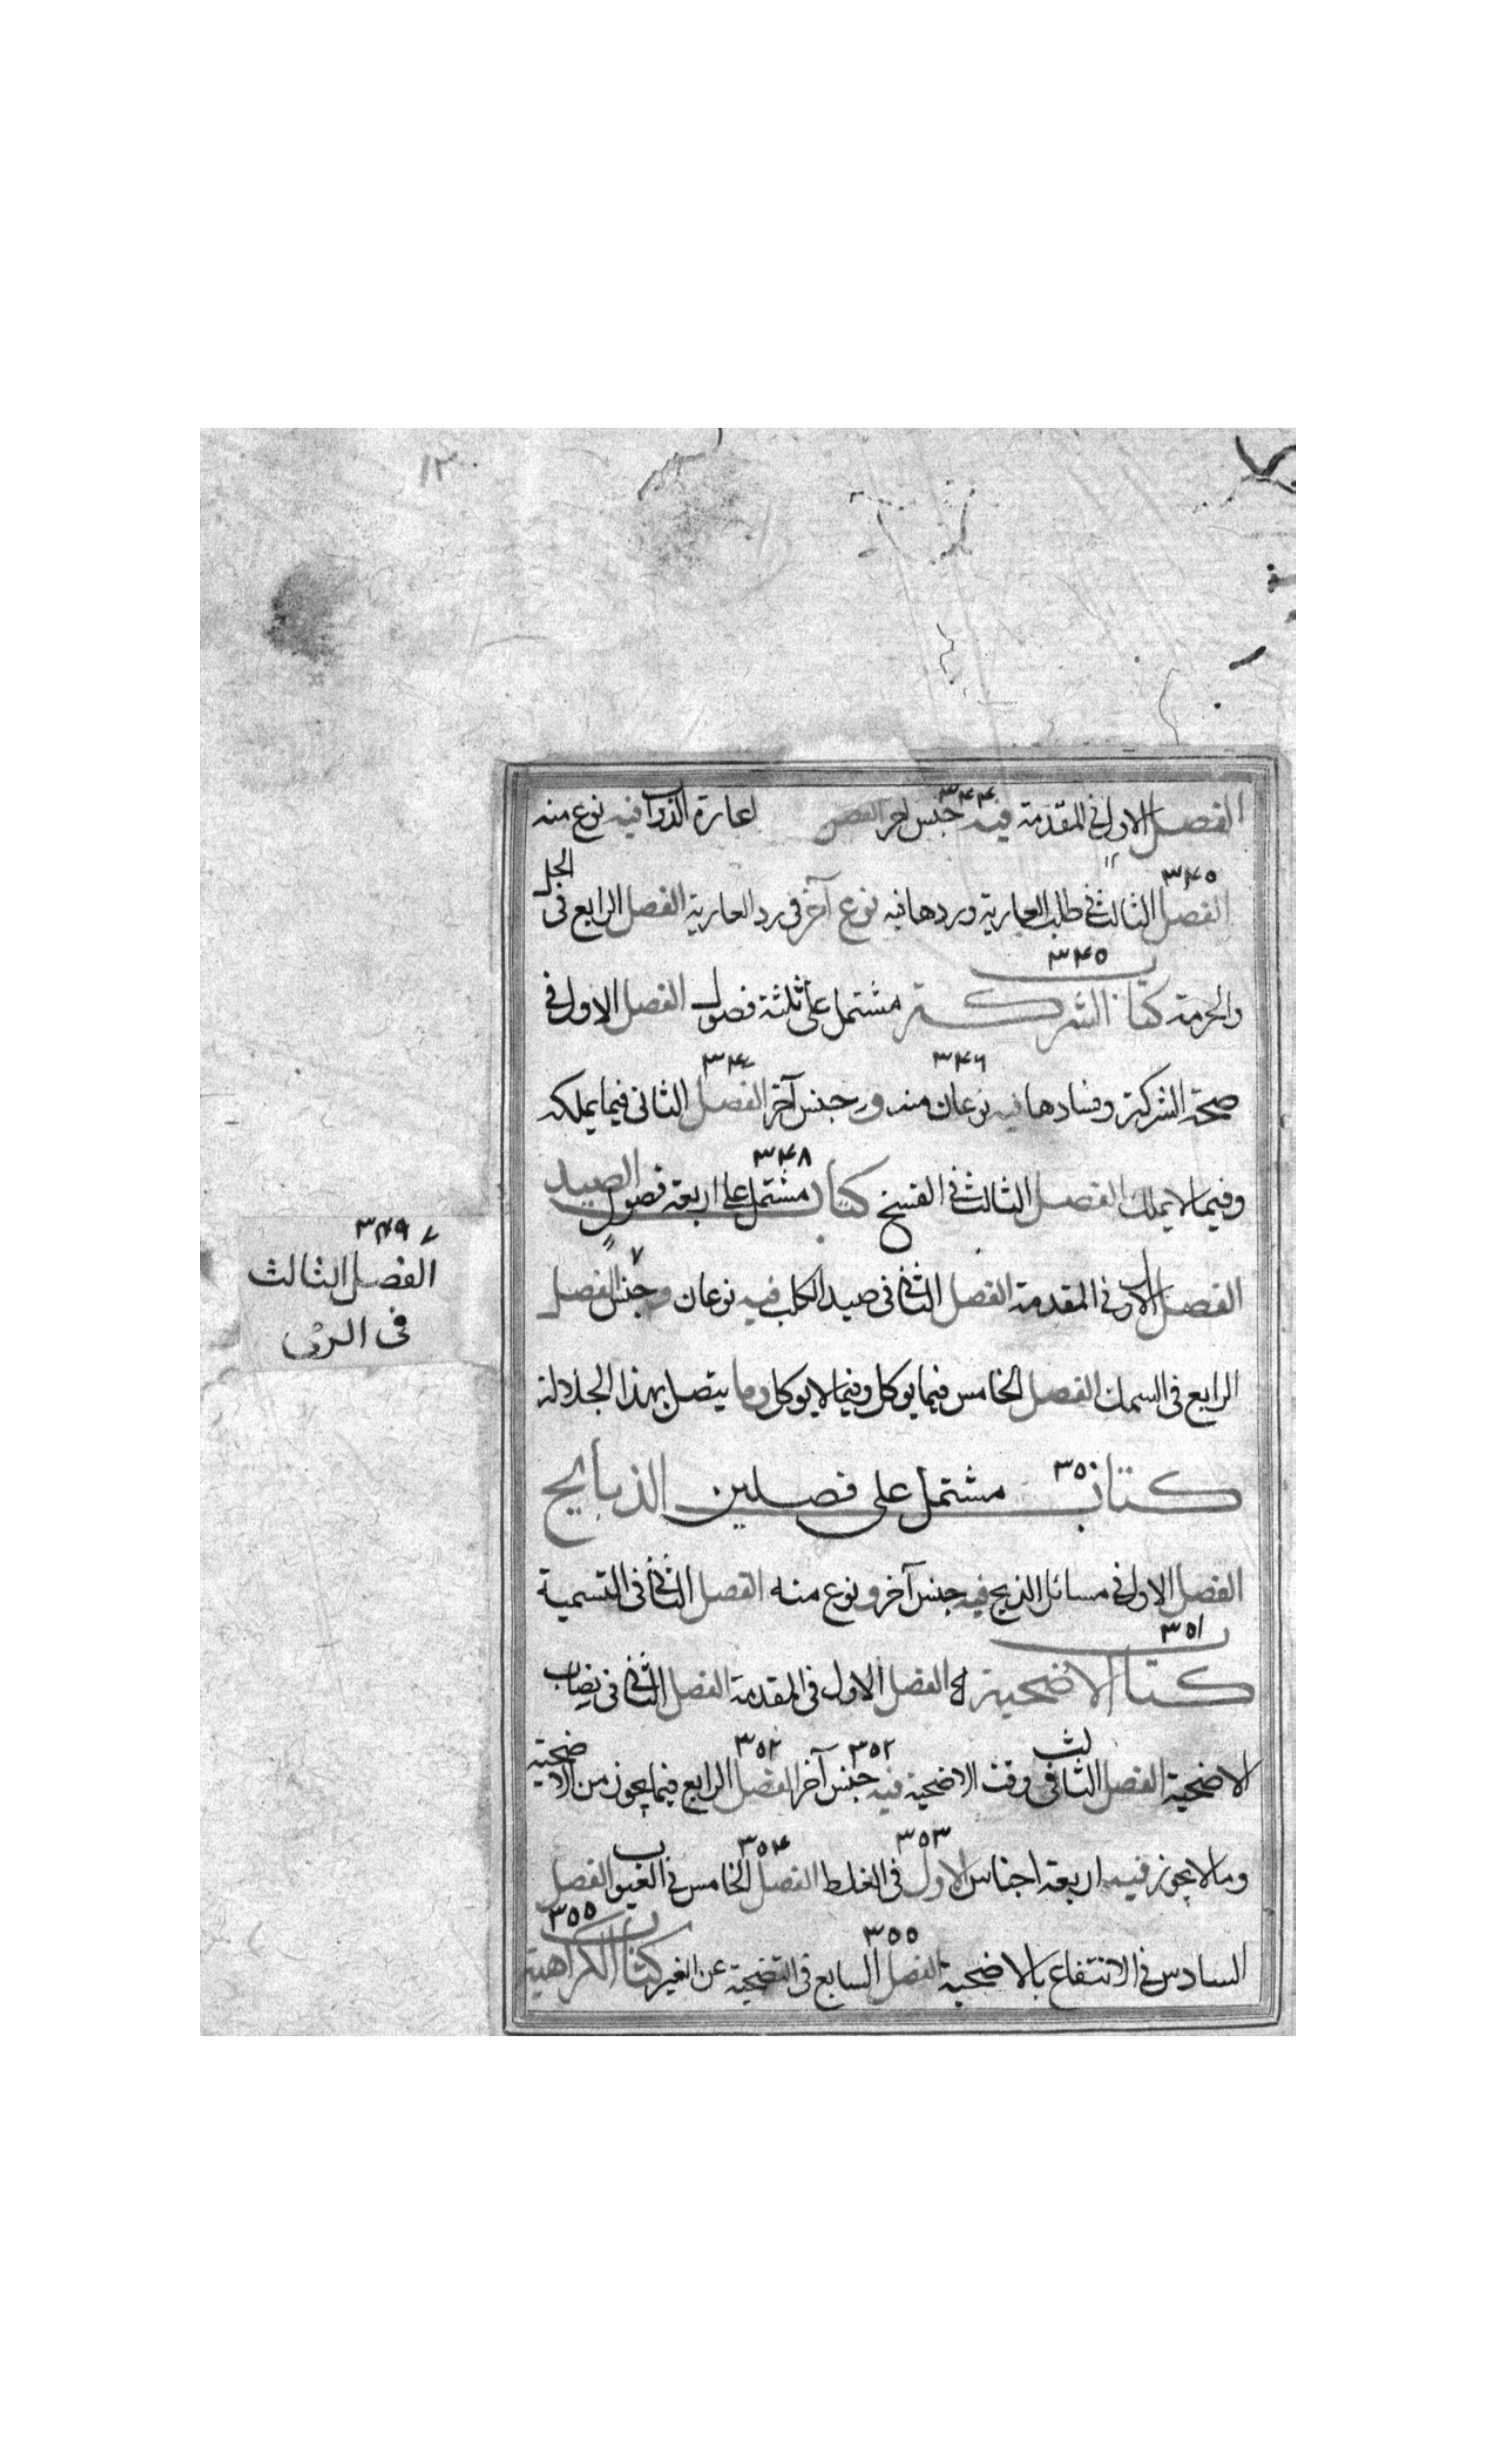 ١٣
٣٤٤
الفصل الاول فى المقدمة فيه جنس اخر الفصل اعارة الدواب فيه نوع منه
٣٤٥
الفصل الثالث فى طلب العارية وردها فيه نوع آخر فى رد العارية الفصل الرابع فى الحل
٣٤٥
والحرمة كتاب الشركة مشتمل على ثلثة فصول الفصل الاول فى
٣٤٦ ٣٤٧
صحة الشركة وفسادها فيه نوعان منه و جنس آخر الفصل الثانى فيما يملكه
٣٤٨
وفيما لا يملك الفصل الثالث فى الفسخ كتاب الصيد مشتمل على اربعة فصول
الفصل الاول فى المقدمة الفصل الثانى فى صيد الكلب فيه نوعان وجنس الفصل
٣٤٩ ٧
الفصل الثالث
فى الرمى
الرابع فى السمك الفصل الخامس فيما يوكل وفيما لا يوكل وما يتصل بهذا
٣٥٠
كتاب الذبايح مشتمل على فصلين
الفصل الاول فى مسائل الذبح فيه جنس آخر و نوع منه الفصل الثانى فى التسمية
٣٥١
كتاب الاضحية الفصل الاول فى المقدمة الفصل الثانى فى نصاب
٣٥٢ ٣٥٢
الاضحية الفصل الثالث فى وقت الاضحية فيه جنس آخر الفصل الرابع فيما يجوز من الاضحية
٣٥٣ ٣٥٤
وما لا يجوز فيه اربعة اجناس الاول فى الغلط الفصل الخامس فى العيوب الفصل
٣٥٥ ٣٥٥
السادس فى الانتفاع بالاضحية الفصل السابع فى التضحية عن الغير كتاب الكراهية